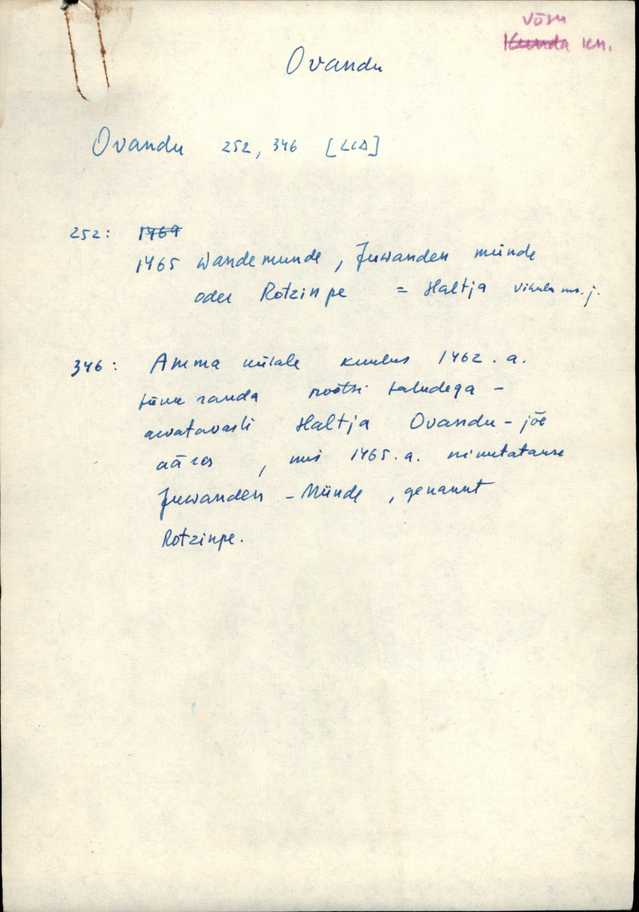 Võsu
Kunda kn.
Ovandu
Ovandu 252, 346 [LCD]
252: 1469
1465 Wandemunde, Juwanden münde
oder Rotzinpe = Haltja
346: Amma kuulus 1462. a.
randa rootsi taludega –
arvatavasti Haltja Ovandu – jõe
ääres, mis 1465. a. nimetatakse
Juwanden – Münde, genannt
Rotzinpe.